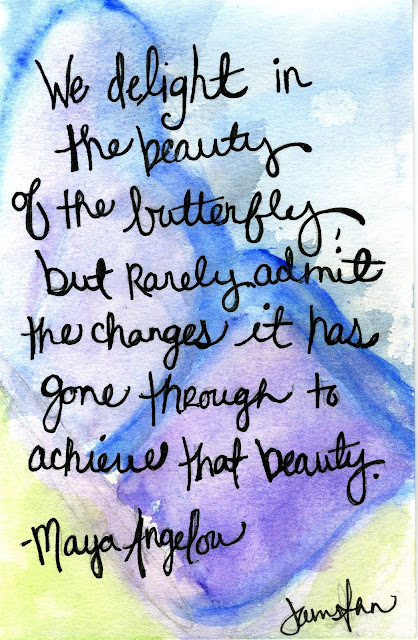 We delight in
the beauty
of the butterfly,
but rarely admit
the changes it has
gone through to
achieve that beauty.
-Maya Angelou